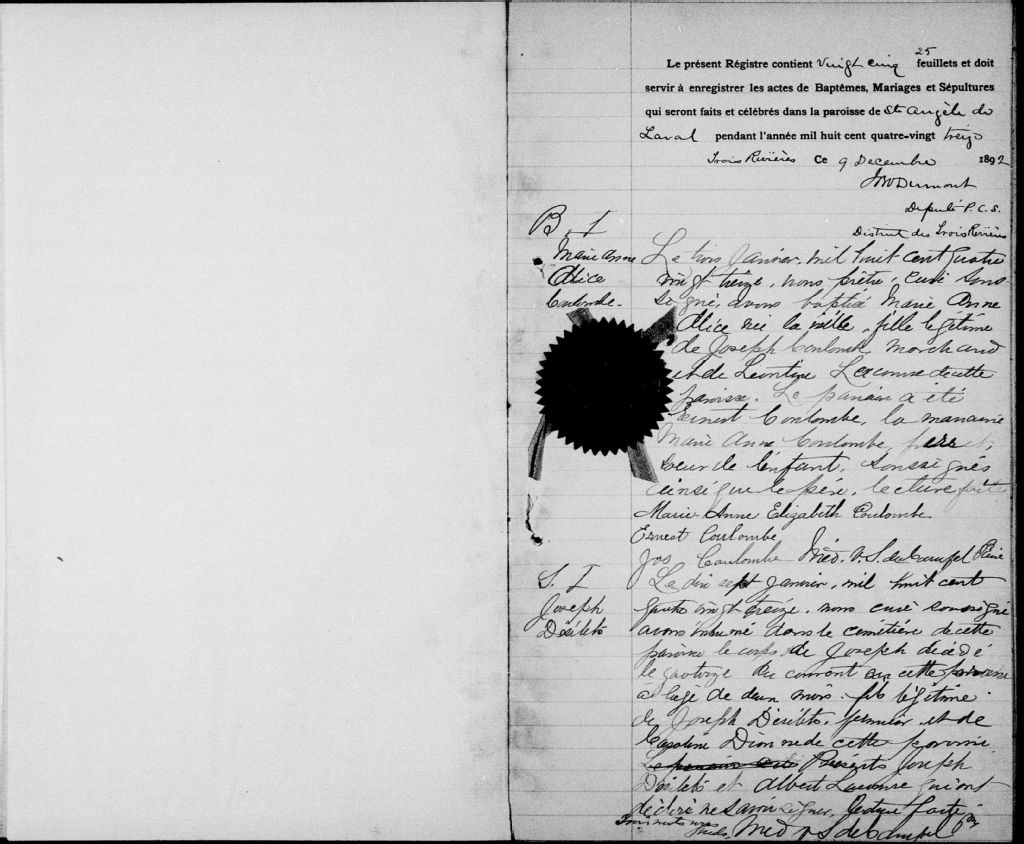 25
Le présent Régistre contient vingt cinq feuillets et doit
servir à enregistrer les actes de Baptêmes, Mariages et Sépultures
qui seront faits et célébrés dans la paroisse de Ste Angèle de
Laval pendant l'année mil huit cent quatre-vingt treize
Trois Rivières Ce 9 Decembre 1892
Députe P.C.S.
District des Trois Rivières
B. 1
Marie Anne
Alice
Coulombe.
Le trois Janvier, mil huit cent quatre
vingt treize, nous prêtre, curé sous-
signé, avons baptisé Marie Anne
Alice née la veille, fille légitime
de Joseph Coulombe, marchand
et de Leontine Lacourse de cette
paroisse. Le parrain a été
Ernest Coulombe, la marraine
Marie Anne Coulombe, frère et,
soeur de l'enfant, soussignés
ainsi que le père. lecture faite
Marie-Anne Elizabeth Coulombe
Ernest Coulombe
Jos Coulombe
S. 1
Joseph
Désilets
Le dix sept janvier, mil huit cent
quatre vingt treize, nous curé soussigné
avons inhumé dans le cimétière de cette
paroisse le corps de Joseph décédé
le quatorze du courant en cette paroisse
à l'age de deux mois. fils légitime
de Joseph Désilets, fermier, et de
Caroline Dionne de cette paroisse
Présents Joseph
Désilets et Albert Lacourse qui ont
déclaré ne savoir signer, lecture faite